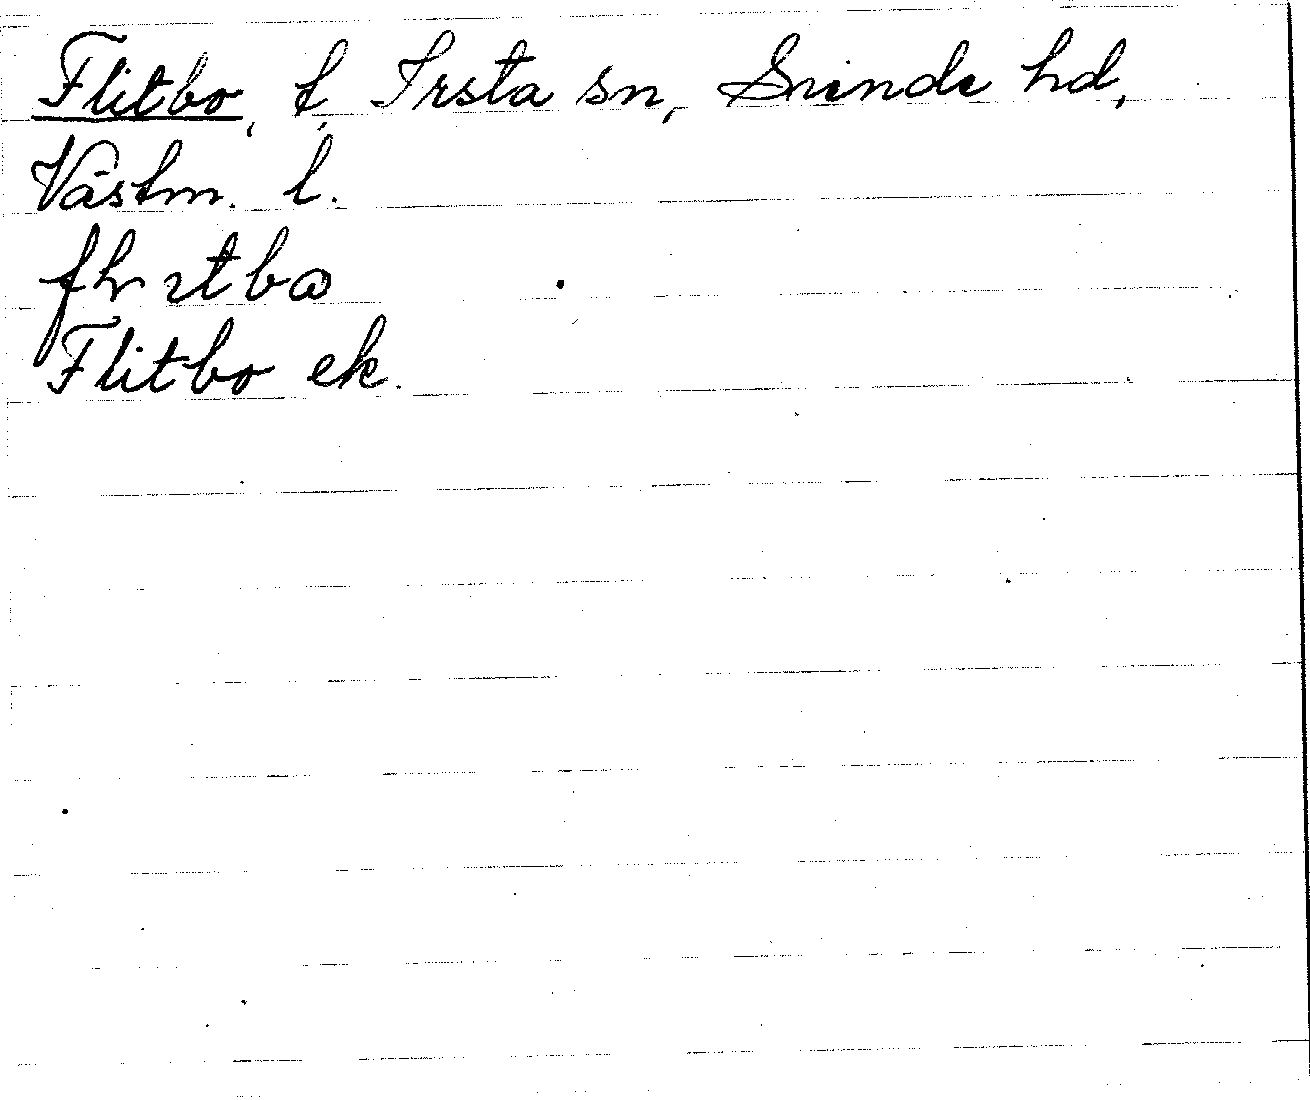 Flitbo, t, Irsta sn, Siende hd,
Västm. l.
Flitbo ek.